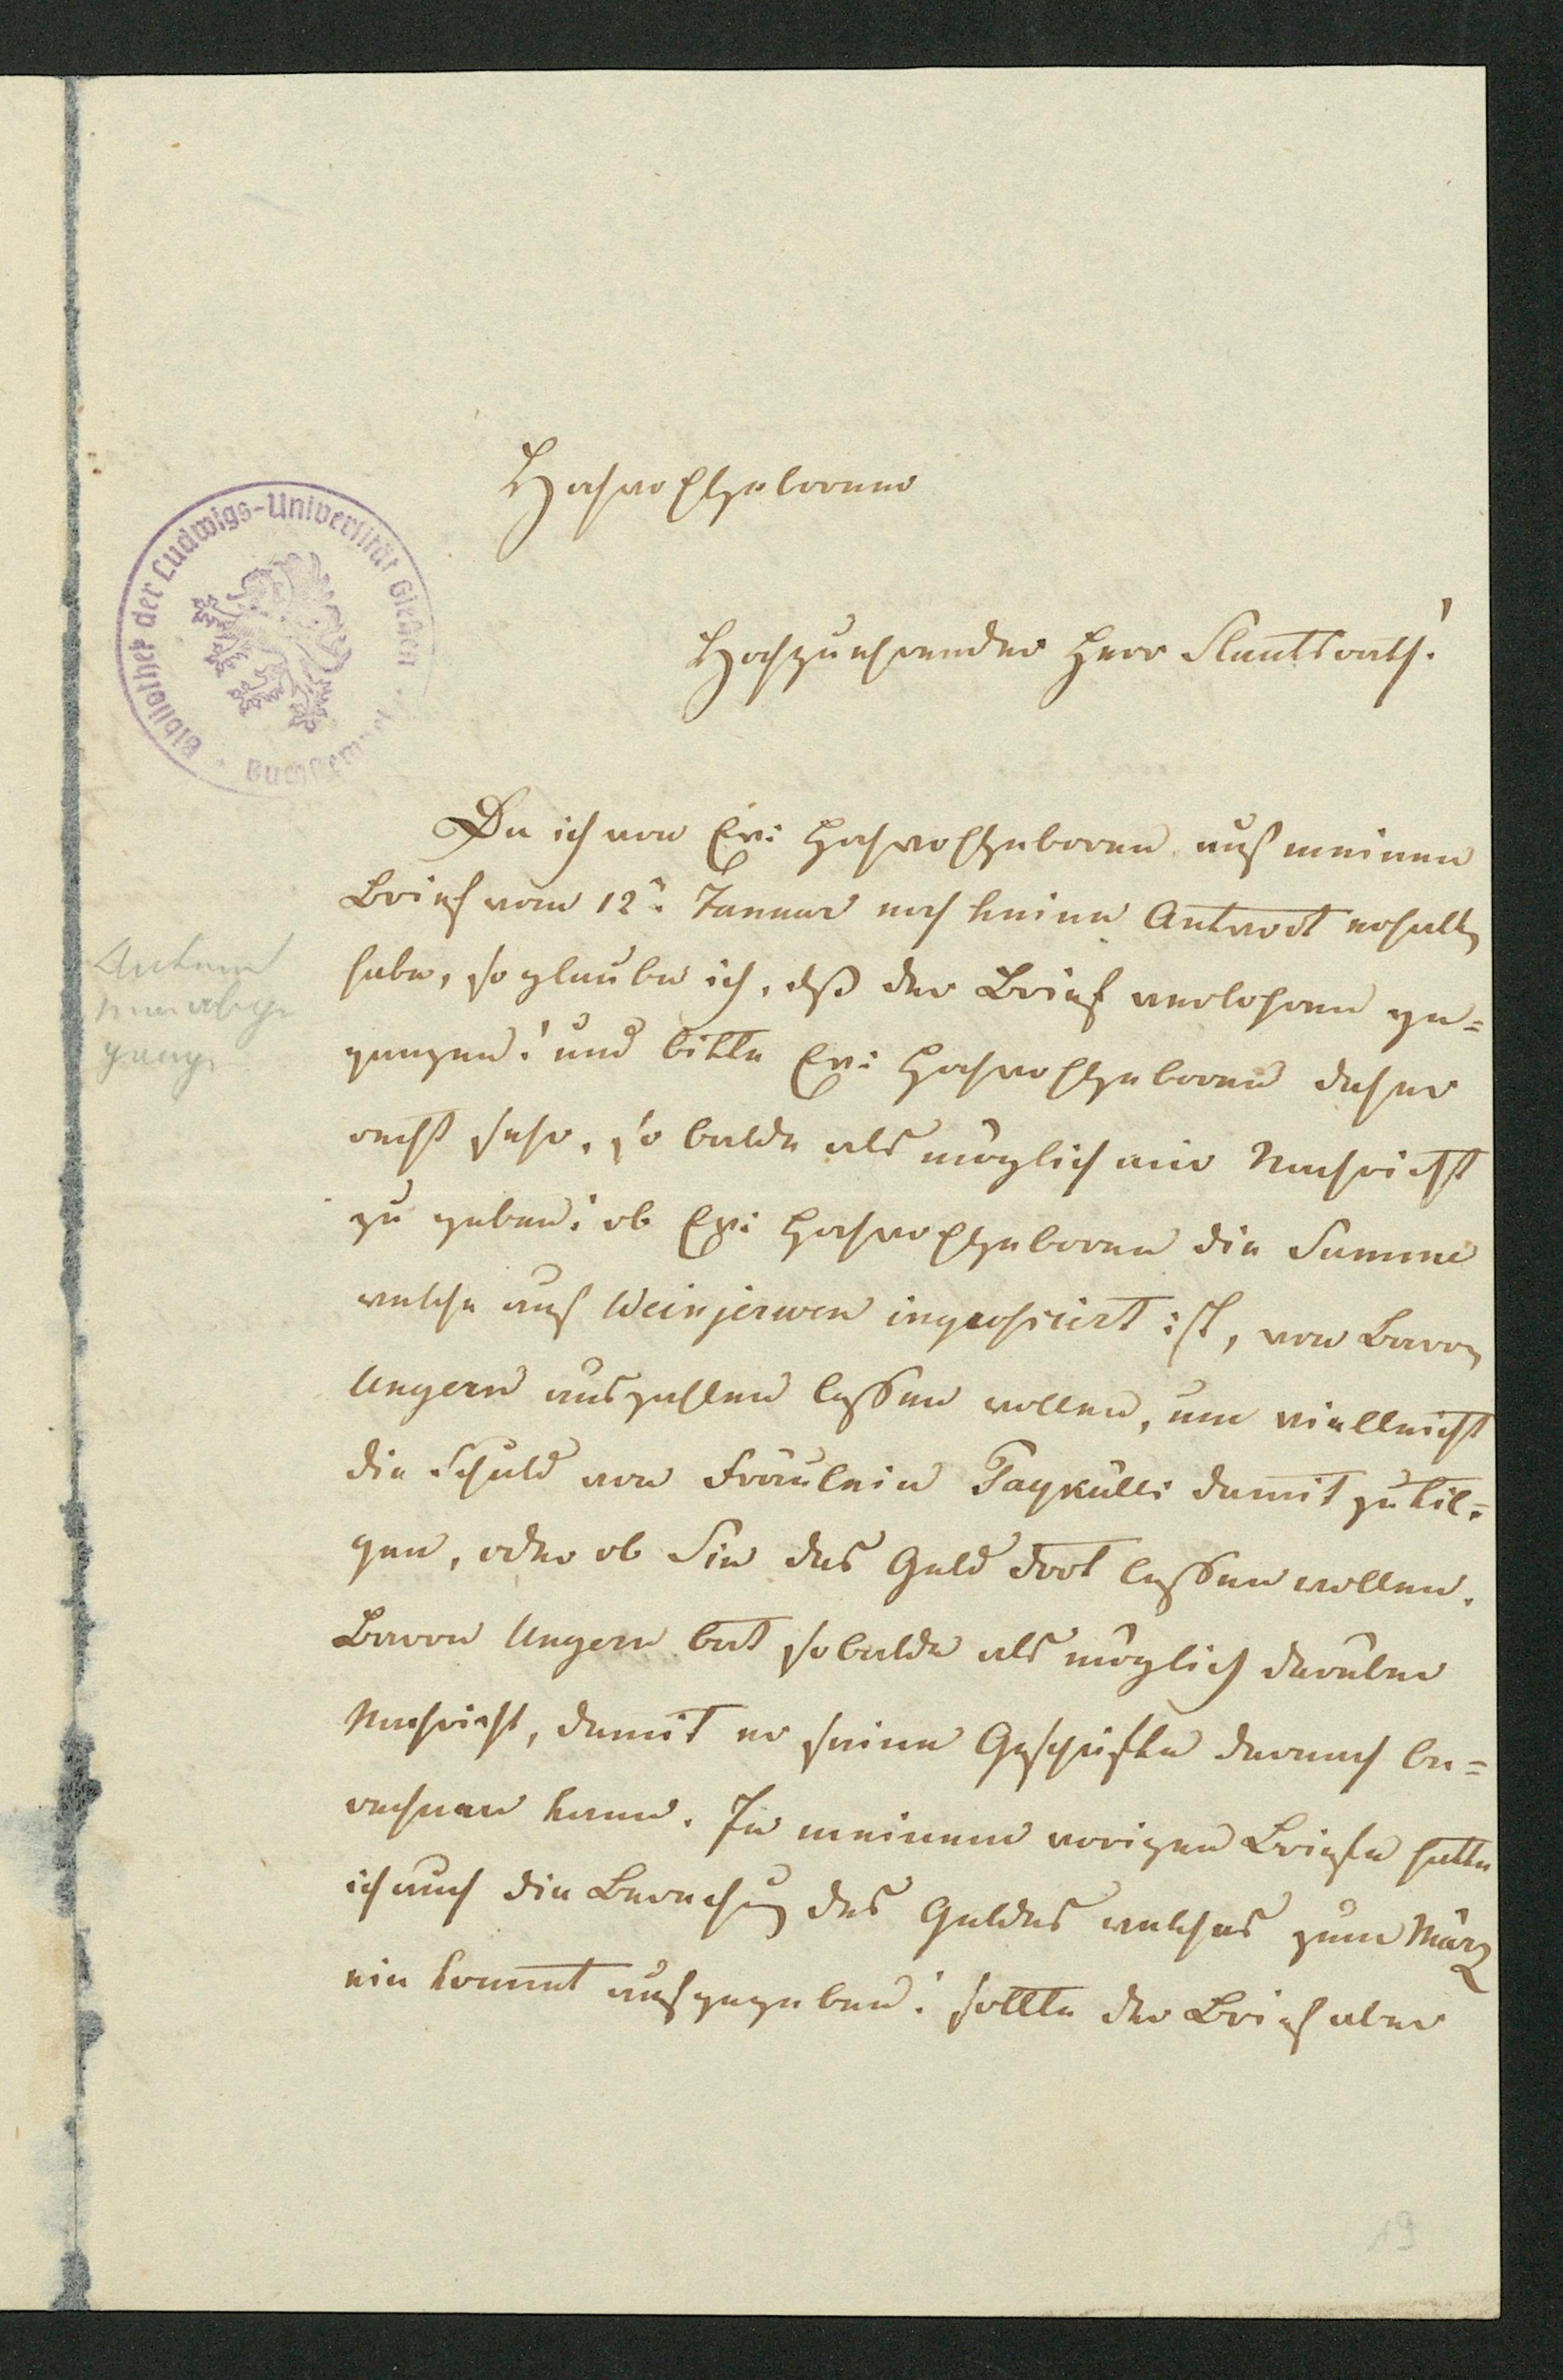 Hochwohlgeborner
Hochzuehrender Herr Staatsrath!
Da ich von Ew: Hochwohlgeboren auf meinen
Brief vom 12n. Januar noch keine Antwort erhalten
habe, so glaube ich, daß der Brief verlohren ge=
gangen! und bitte Ew: Hochwohlgeboren daher
recht sehr, so balde als möglich mir Nachricht
zu geben: ob Ew: Hochwohlgeboren die Summe
welche auf Weinjerwen ingrossiert ist, von Baron
Ungern auszahlen lassen wollen, um vielleicht
die Schuld von Fräulein Taykülls damit zu til=
gen, oder ob Sie das Geld dort lassen wollen.
Baron Ungern bat sobalde als möglich darüber
Nachricht, damit er seine Geschäfte darnach be=
rechnen kann. In meinem vorigen Briefe hatte
ich auch die Berechnung des Geldes welches zum März
ein kommt aufgegeben! sollte der Brief aber
Antwort
abge
gang.
Bibliothek der Ludwigs-Universität Gießen
19